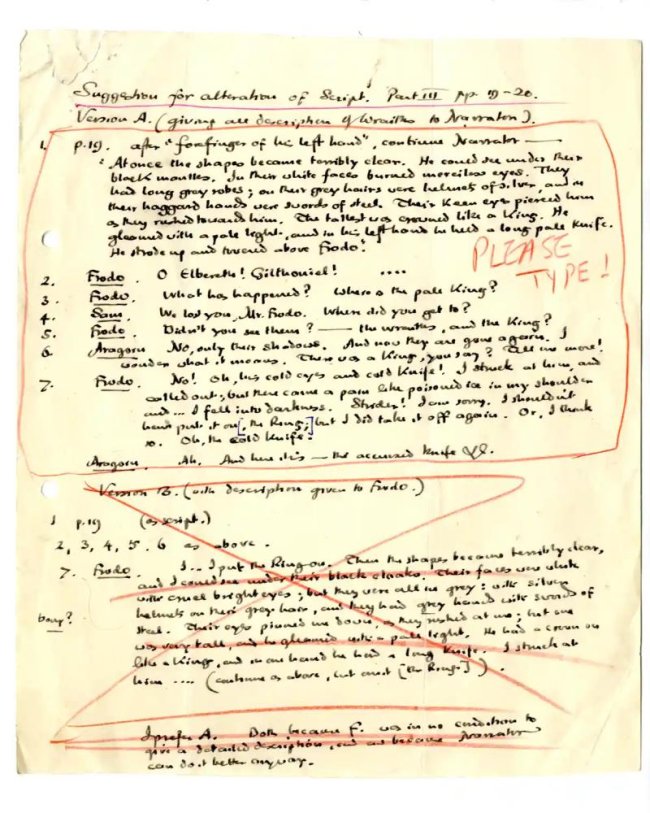 Suggestion for alteration of Script. Part III pp. 19-20.
Version A. (giving all description of Wraiths to Narrator).
1. p.19. after "forefinger of his left hand", continue Narrator —
'At once the shapes became terribly clear. He could see under their
black mantles. In their white faces burned merciless eyes. They
had long grey robes; on their grey hairs were helmets of silver, and in
their haggard hands were swords of steel. Their keen eyes pierced him
as they rushed towards him. The tallest was crowned like a King. He
gleamed with a pale light, and in his left hand he held a long pale knife.
He strode up and towered above Frodo.'
PLEASE
TYPE!
2. Frodo. O Elbereth! Gilthoniel! ....
3. Frodo. What has happened? Where is the pale King?
4. Sam. We lost you, Mr. Frodo. Where did you get to?
5. Frodo. Didn't you see them? — the wraiths, and the King?
6. Aragorn No, only their shadows. And now they are gone again. I
wonder what it means. There was a King, you say? Tell me more!
7. Frodo. No! Oh, his cold eyes and cold knife! I struck at him, and
called out; but there came a pain like poisoned ice in my shoulder
and ... I fell into darkness. Strider! I am sorry. I shouldn't
have put it on [, the Ring;] but I did take it off again. Or, I think
so. Oh, the cold knife!
Aragorn. Ah. And here it is — the accursed knife &c.
Version B. (with description given to Frodo.)
1 p.19 (as script.)
2, 3, 4, 5. 6 as above.
7. Frodo. I... I put the Ring on. Then the shapes became terribly clear,
and I could see under their black cloaks. Their faces were white
with cruel bright eyes; but they were all in grey: with silver
helmets on their grey hair, and they had grey hands with swords of
steel. Their eyes pinned me down, as they rushed at me; but one
was very tall, and he gleamed with a pale light. He had a crown on
like a King, and in one hand he had a long knife. I struck at
him .... (continue as above, but omit [the Ring;]).
I prefer A. Both because F. was in no condition to
give a detailed description, and because Narrator
can do it better anyway.